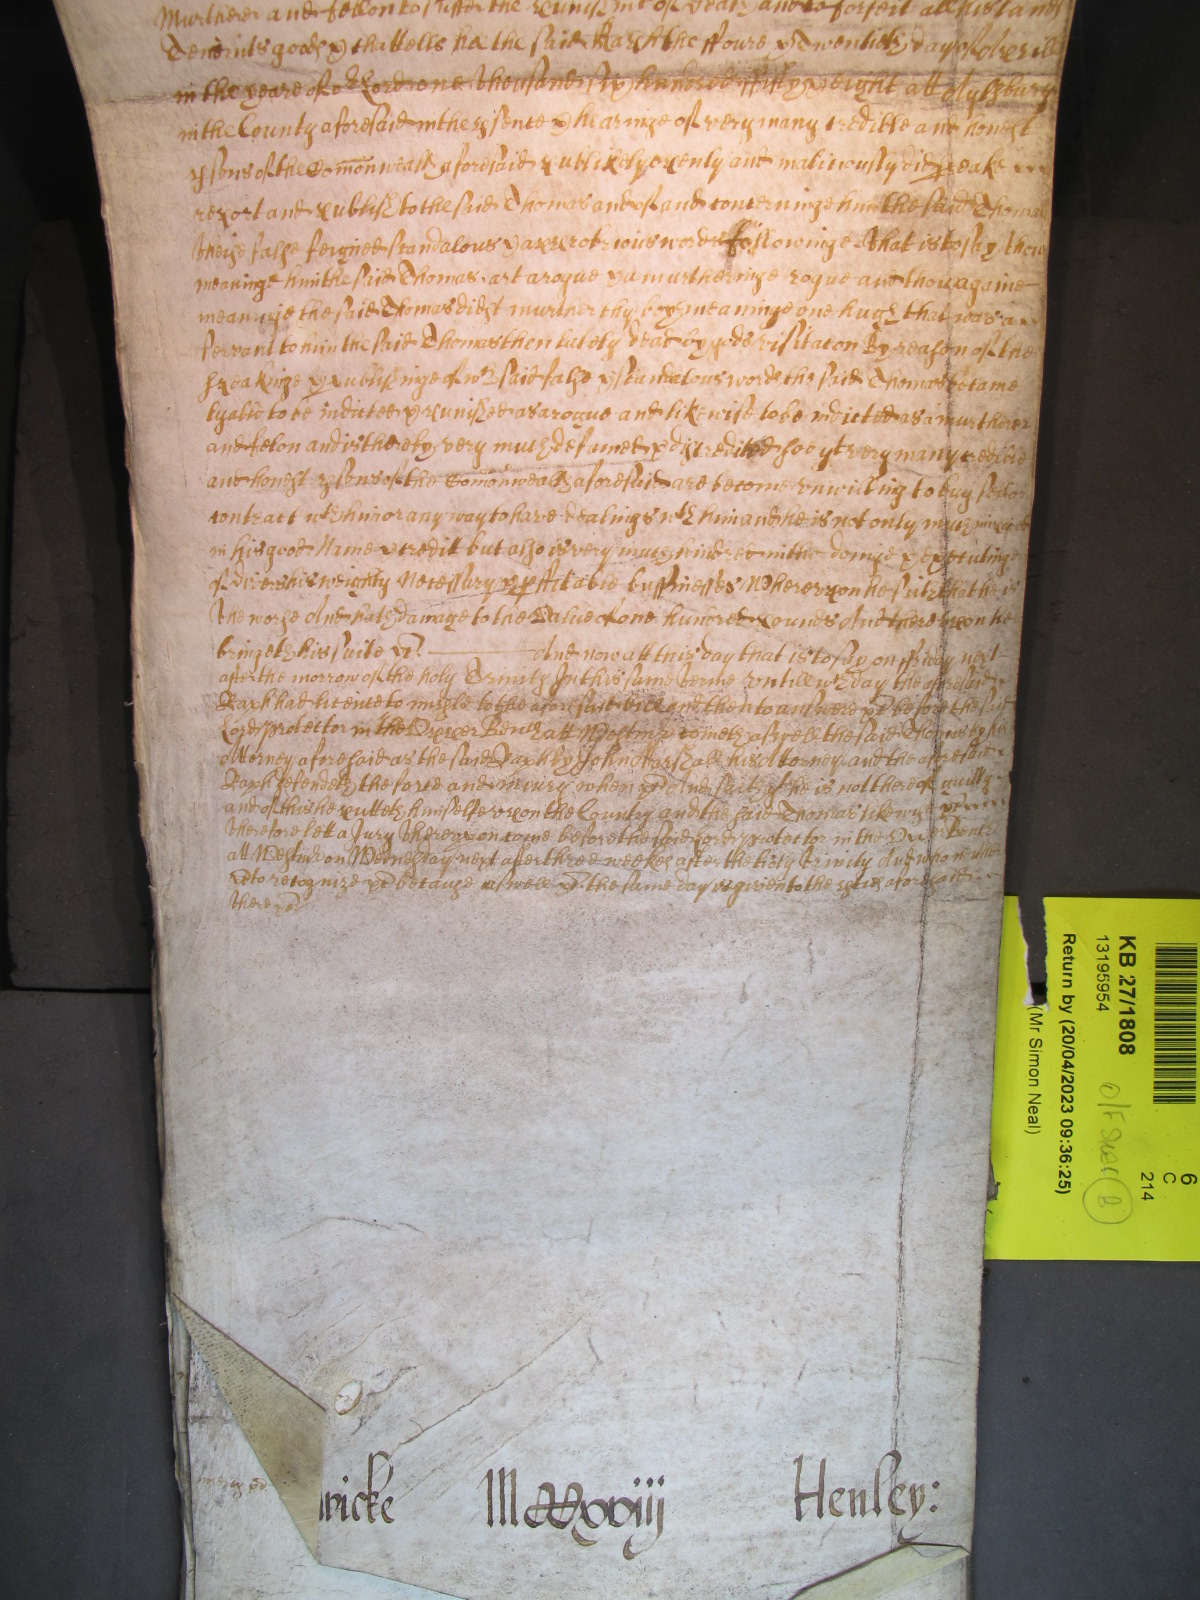 Murtherer and fellon to suffer the punishmt of death and to forfeit all his lands
Tenemts goods & chattells hee the said Raph the ffoure & Twentieth day of Aprill
in the yeare of or Lord one thousand six hundred ffifty & eight att
in the County aforesaid in the psence & hearinge of very many credible and honest
psons of the Comonwealth aforesaid publikely openly and malitiously did speake
report and publish to the said Thomas and of and concerninge him the said Thomas
theise false feigned scandalous & approbrious words followinge That is to say thou
meaninge him the said Thomas art a rogue & a murtheringe rogue and thou againe
meaninge the said Thomas didst murther thy boy meaninge one Hugh that was a
servant to him the said Thomas then lately dead by gods visitacon By reason of the
speakinge & publishinge of wch said false & scandalous words the said Thomas became
lyable to be indicted & punished as a rogue and likewise to be indicted as a murtherer
and felon and is thereby very much defamed & discredited soe yt very many credible
and honest psons of the Comonwealth aforesaid are become unwilling to buy sell or
contract wth him or any way to have dealings wth him and he is not only much
in his good Name & creditt but also is very much hindred in the doinge & executinge
of divers his weighty Necessary & pffitable bussinesses Whereupon he saith that he is
the worse And hath damage to the Value of one hundred pounds And thereupon he
bringeth his suite &c. And now att this day that is to say on ffriday next
after the morrow of the holy Trinity In this same Terme untill wch day the aforesaid
Raph had licence to imparle to the aforesaid bill and then to answere &c before the said
Lord Protector in the Upper Bench att Westmr cometh aswell the said Thomas by his
Attorney aforesaid as the said Raph by John Marshall his Attorney and the aforesaid
Raph defendeth the force and iniury when &c And saith yt he is not thereof guilty
and of this he putteth himselfe upon the Country and the said Thomas likewise
Therefore lett a Jury thereupon come before the said Lord Protector in the Upper Bench
att Westmr on Wednesday next after three weekes after the holy Trinity And who neither
&c to recognize &c because aswell &c the same day is given to the pties aforesaid
there &c
wicke MCCxxviij Henley:
KB 27/1808
13195954
Return by (20/04/2023 09:36:25)
(Mr Simon Neal)
6
C
214
B